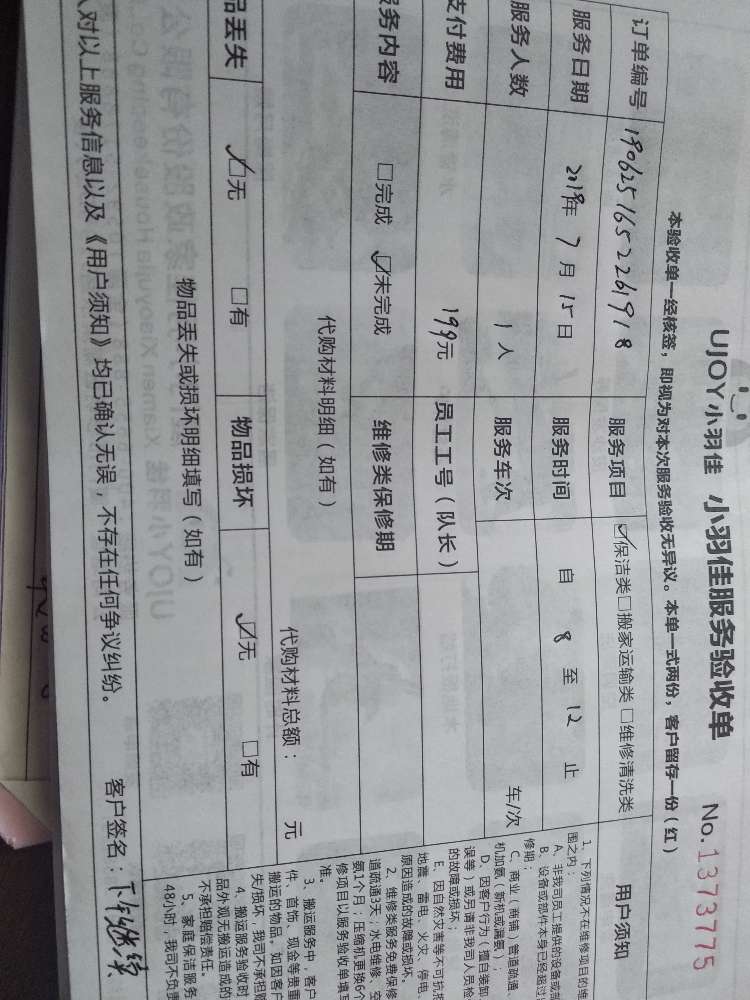 UJOY小羽佳 小羽佳服务验收单 No.1373775
本验收单一经核签，即视为对本次服务验收无异议。本单一式两份，客户留存一份（红）
订单编号 1906251652261918 服务项目 ☑保洁类□搬家运输类 □维修清洗类 用户须知
服务日期 2019年 7 月 15 日 服务时间 自 8 至 12 止
服务人数 1 人 服务车次 车/次
支付费用 199元 员工工号（队长）
服务内容 □完成 ☑未完成 维修类保修期
代购材料明细（如有） 代购材料总额： 元
品丢失 ☑无 □有 物品损坏 ☑无 □有
物品丢失或损坏明细填写（如有）
人对以上服务信息以及《用户须知》均已确认无误，不存在任何争议纠纷。 客户签名：
1、下列情况不在维修项目的维
围之内：
A、非我司员工提供的设备或部
B、设备或部件本身已经超过
修期；
C、商业（商铺）管道疏通、
机加氨（新机或漏氨）；
D、因客户行为（擅自装卸、
误等）或另请非我司人员检
的故障或损坏；
E、因自然灾害等不可抗拒
地震、雷电、火灾、停电、
原因造成的故障或损坏。
2、维修类服务免费保修
道疏通3天；水电维修、空
氨1个月；压缩机更换6个
修项目以服务验收单填写
准。
3、搬运服务中，客户
件、首饰、现金等贵重
搬运的物品。如因客户
失/损坏，我司不承担赔
4、搬运服务验收时
品外观无搬运造成的
不承担赔偿责任。
5、家庭保洁服务
48小时，我司不负责